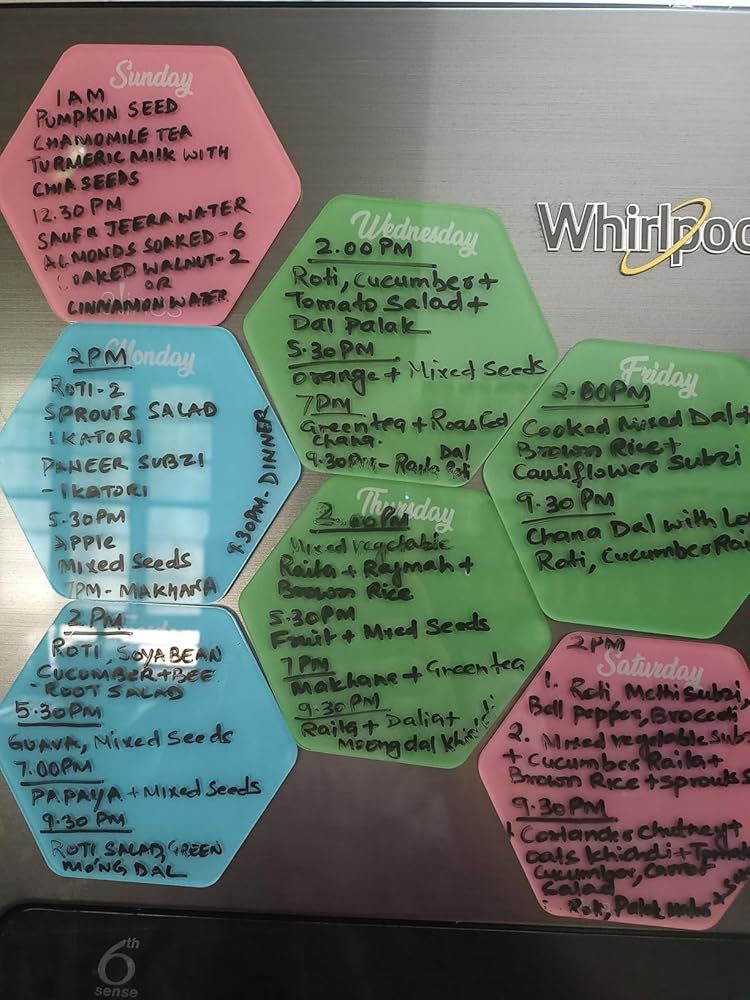 Sunday
1 AM
PUMPKIN SEED
CHAMOMILE TEA
TURMERIC MILK WITH
CHIA SEEDS
12.30 PM
SAUF & JEERA WATER
ALMONDS SOAKED - 6
OAKED WALNUT - 2
OR
CINNAMON WATER
Monday
2PM
ROTI - 2
SPROUTS SALAD
1 KATORI
PANEER SUBZI
- 1 KATORI
5.30PM
APPLE
Mixed Seeds
7PM - MAKHANA
9.30PM - DINNER
2 PM
ROTI, SOYABEAN
CUCUMBER + BEE
ROOT SALAD
5.30PM
GUAVA, Mixed Seeds
7.00PM
PAPAYA + Mixed Seeds
9.30 PM
ROTI SALAD, GREEN
MONG DAL
Wednesday
2.00 PM
Roti, Cucumber +
Tomato Salad +
Dal Palak
5.30 PM
Orange + Mixed Seeds
7PM
Greentea + Roasted
Chana.
Dal
9.30PM -
Thursday
2.00 PM
Mixed vegetable
Raita + Rajmah +
Brown Rice
5.30PM
Fruit + Mixed Seeds
7 PM
Makhane + Greentea
9.30 PM
Raita + Dalia +
Moong dal
Friday
2.00PM
Cooked Mixed Dal +
Brown Rice +
Cauliflower Subzi
9.30 PM
Chana Dal with
Roti, Cucumber
Saturday
2PM
1. Roti Methi Subzi,
Bell Pepper,
2. Mixed vegetable
+ Cucumber Raita +
Brown Rice + Sprouts
9.30PM
1 Coriander Chutney +
oats khichdi +
Cucumber, Carrot
Salad
Roti, Palak
Whirlpoo
6th
sense